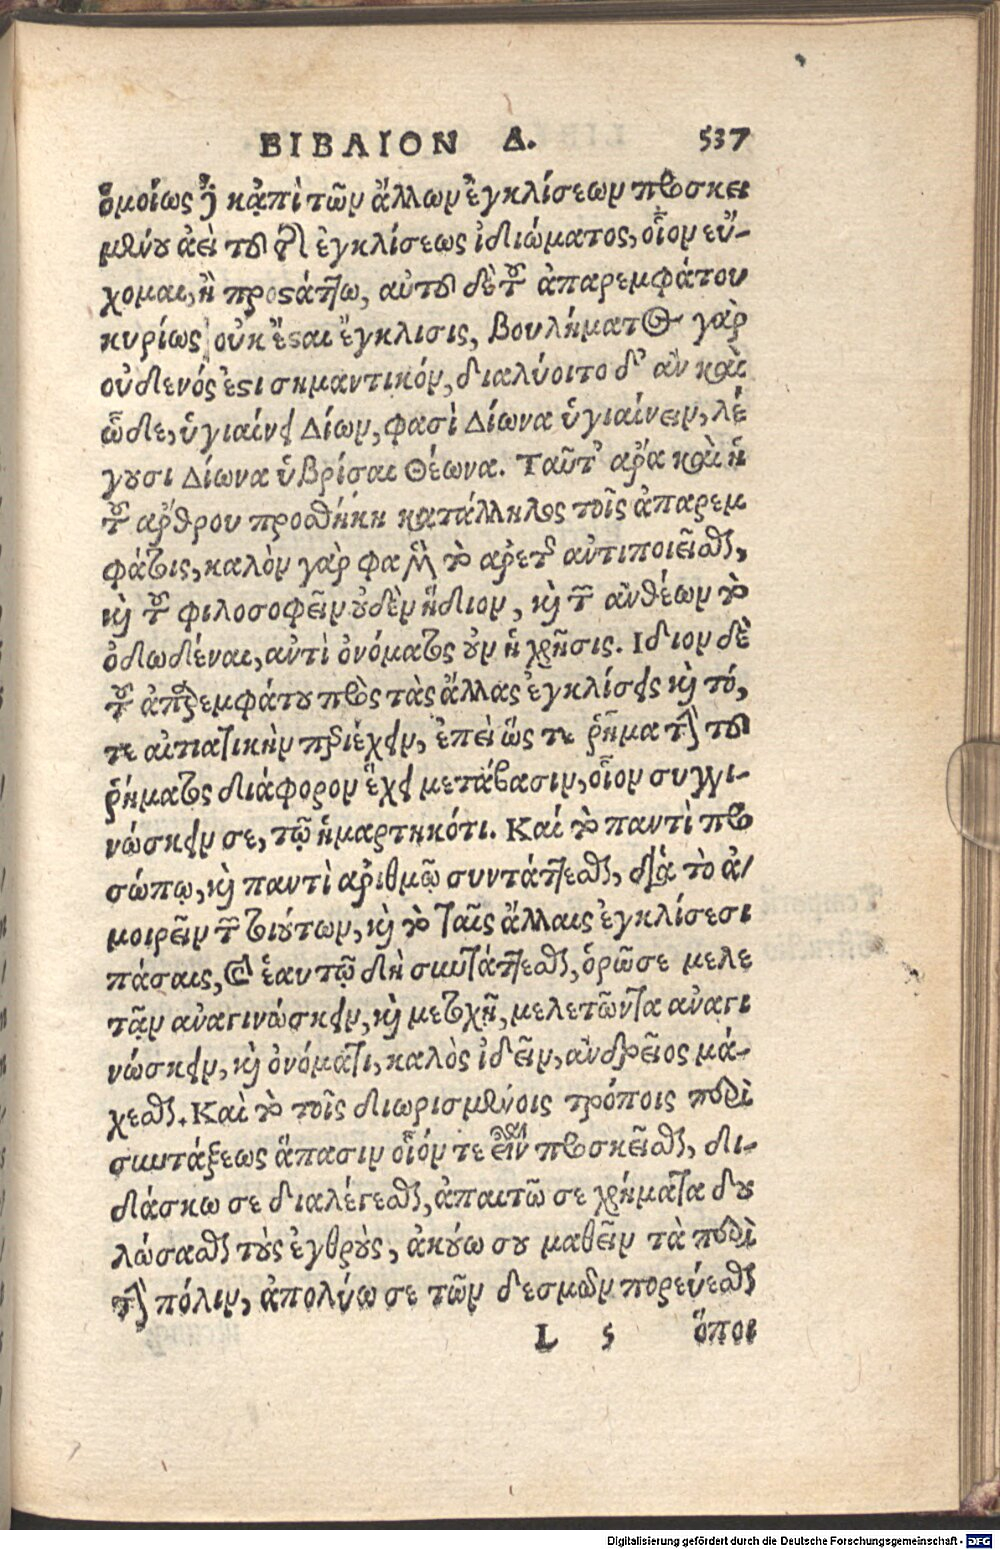 ΒΙΒΛΙΟΝ Δ. 537
ὁμοίως ἢ κἀπὶ τῶν ἄλλων ἐγκλίσεων προσκει
μένου ἀεὶ τοῦ τῆς ἐγκλίσεως ἰδιώματος, οἷον εὔ-
χομαι, ἢ προστάττω, αὐτοῦ δὲ τοῦ ἀπαρεμφάτου
κυρίως οὐκ ἔσται ἔγκλισις, βουλήματος γὰρ
οὐδενός ἐστι σημαντικόν, διαλύοιτο δ' ἂν καὶ
ὧδε, ὑγιαίνει Δίων, φασὶ Δίωνα ὑγιαίνειν, λέ
γουσι Δίωνα ὑβρίσαι Θέωνα. Ταῦτ' ἄρα καὶ ἡ
τοῦ ἄρθρου προσθήκη κατάλληλος τοῖς ἀπαρεμ
φάτοις, καλὸν γὰρ φαμὲν τὸ ἀρετῆς ἀντιποιεῖσθαι,
καὶ τοῦ φιλοσοφεῖν οὐδὲν ἥδιον, καὶ τῶν ἀνθέων τὸ
ὀδωδέναι, ἀντὶ ὀνόματος οὖν ἡ χρῆσις. Ιδιον δὲ
τοῦ ἀπαρεμφάτου πρὸς τὰς ἄλλας ἐγκλίσεις καὶ τό,
τε αἰτιατικὴν περιέχειν, ἐπεὶ ὥς τε ῥῆμα τὴν τοῦ
ῥήματος διάφορον ἔχει μετάβασιν, οἷον συγγι-
νώσκειν σε, τῷ ἡμαρτηκότι. Καί τὸ παντὶ προ
σώπῳ, καὶ παντὶ ἀριθμῷ συντάττεσθαι, διὰ τὸ ἀ-
μοιρεῖν τῶν τοιούτων, καὶ τὸ ταῖς ἄλλαις ἐγκλίσεσι
πάσαις, καὶ ἑαυτῷ δὴ συντάττεσθαι, ὁρῶ σε μελε
τᾷν ἀναγινώσκειν, καὶ μετοχῇ, μελετῶντα ἀναγι
νώσκειν, καὶ ὀνόματι, καλὸς ἰδεῖν, ἀνδρεῖος μά-
χεσθαι. Καὶ τὸ τοῖς διωρισμένοις τρόποις περὶ
συντάξεως ἅπασιν οἷόν τε εἶναι προσκεῖσθαι, δι-
δάσκω σε διαλέγεσθαι, ἀπαιτῶ σε χρήματα δου
λώσασθαι τοὺς ἐχθροὺς, ἀκούω σου μαθεῖν τὰ περὶ
τὴν πόλιν, ἀπολύω σε τῶν δεσμῶν πορεύεσθαι
L 5 ὅποι
Digitalisierung gefördert durch die Deutsche Forschungsgemeinschaft - DFG